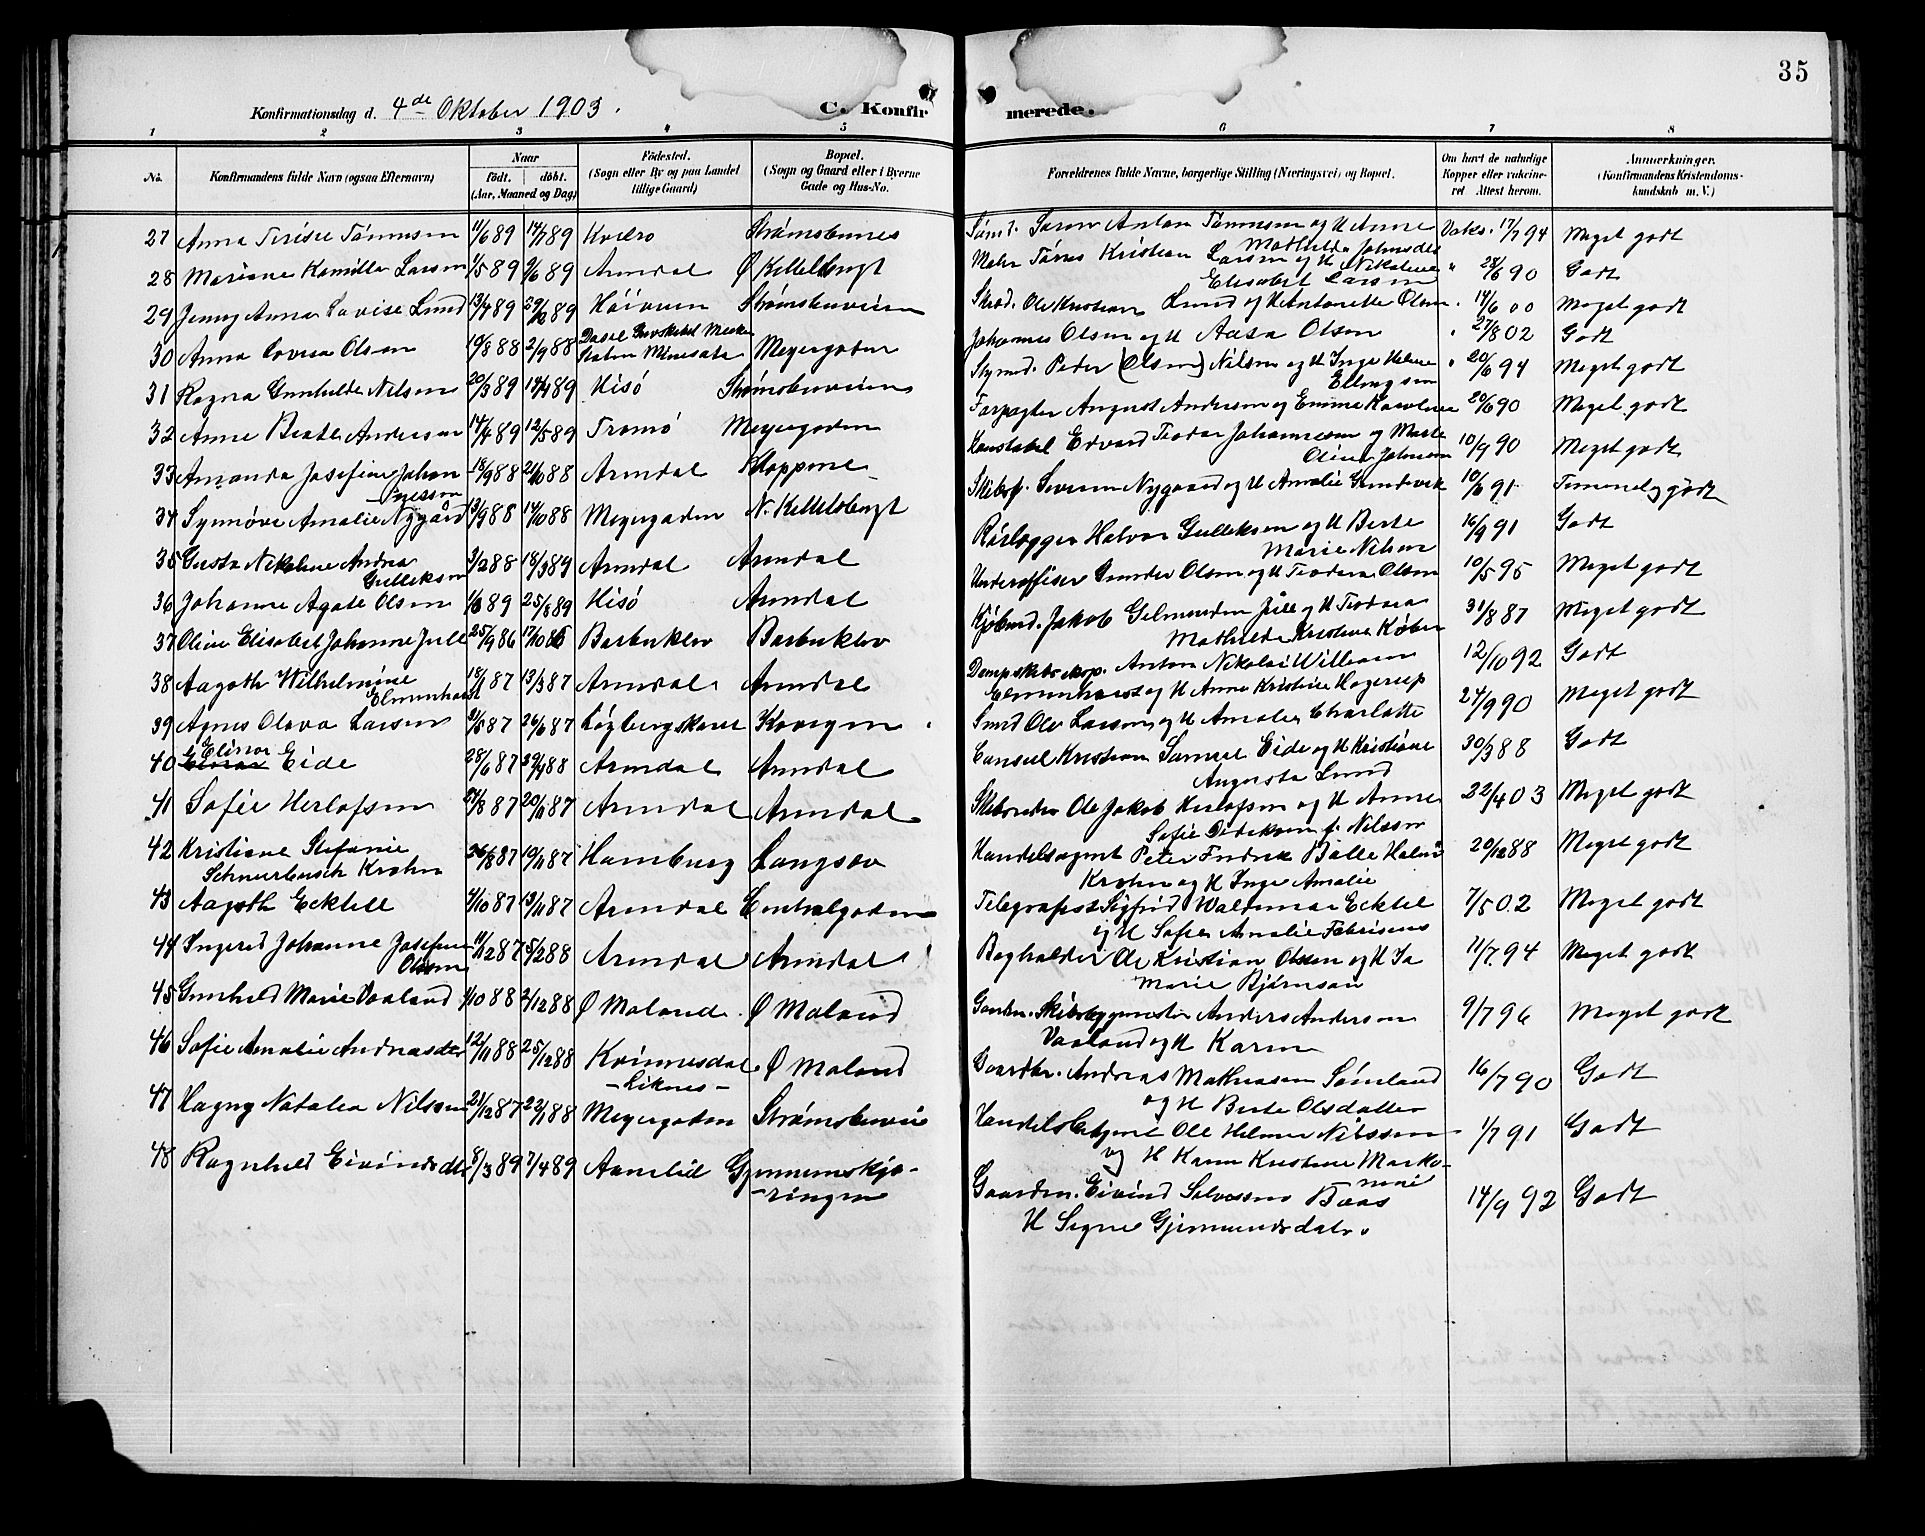 35
Konfirmationsdag d. 4de Oktober 1903.
C. Konfirmerede.
1 2 3 4 5 6 7 8
No. Konfirmandens fulde Navn (ogsaa Efternavn) Naar födt. döbt. (Aar, Maaned og Dag) Födested. (Sogn eller By og paa Landet tillige Gaard) Bopæl. (Sogn og Gaard eller i Byerne Gade og Hus-No. Forældrenes fulde Navne, borgerlige Stilling (Næringsvei) og Bopæl. Om havt de naturlige Kopper eller vakcineret. Attest herom. Anmærkninger. (Konfirmandens Kristendomskundskab m. V.)
27 Anna Terisie Tönnesen 11/6 89 14/7 89 Strømsbunes Sømd. Anton Tönnesen og H Anne Mathilde Johnsdtr Vaks. 17/7 94 Meget godt
28 Mariane Kamilla Larsen 1/5 89 9/6 89 Arendal Ø Kittelsbugt Maler Tönnes Kristian Larsen og H Nikoline Elisabet Larsen " 28/6 90 Godt
29 Jenny Anna Lovise Lund 13/4 89 Strømsbuveien Skræd. Ole Kristian Lund og H Antonette Olsen " 14/6 00 Meget godt
30 Anna Lovisa Olsen 19/8 88 2/9 88 Meyergaden Johannes Olsen og H Aasa Olsen " 27/8 02 Godt
31 Ragna Gunhilde Nilsen 20/3 89 14/4 89 Hisö Strømsbuveien Styrmd. Peder (Olsen) Nilsen og H Inga Helene Ellingsen " 20/6 94 Meget godt
32 Anne Berthe Andersen 14/4 89 12/5 89 Tromö Meyergaden Forpagter August Andersen og Emma Karoline 20/6 90 Meget godt
33 Amanda Josefine Johannesson 18/9 88 21/10 88 Arendal Kloppene Konstabel Edvard Teodor Johannesen og Marte Oline Johnsen 10/9 90 Meget godt
34 Synnöve Amalie Nygård 13/9 88 14/10 88 Meyergaden N. Kittelsbugt Skibsf. Severin Nygaard og H Amalie Gundersen 10/6 91 Temmelig godt
35 Gusta Nikoline Andrea Gulleksen 3/12 88 18/3 89 Arendal Arendal Rörlægger Halvor Gulleksen og H Berte Marie Nilsen 16/9 91 Godt
36 Johanne Agate Olsen 1/6 89 25/8 89 Hisö Arendal Underoffiser Gunder Olsen og H Teodora Olsen 10/5 95 Meget godt
37 Oline Elisabet Johanne Juell 25/9 86 17/10 86 Barbuklev Barbuklev Kjöbmd. Jakob Gelmuyden Juell og H Teodora Mathilde Kristine Köber 31/8 87 Meget godt
38 Aagoth Wilhelmine Elmenhorst 18/1 87 13/3 87 Arendal Arendal Dampskibseksp. Anton Nikolai William Elmenhorst og H Anne Kristine Hagerup 12/10 92 Godt
39 Agnes Olava Larsen 9/5 87 26/6 87 Løgbergskaret Smed Ole Larsen og H Amalie Charlotte 24/9 90 Meget godt
40 Elinor Eide 28/6 87 Arendal Arendal Consul Kristian Samuel Eide og H Kristiane Augusta Lund 30/3 88 Godt
41 Sofie Herlofsen 20/11 87 Arendal Arendal Skibsreder Ole Jakob Herlofsen og H Anne Sofie Didriksen f. Nilssen 22/4 03 Meget godt
42 Kristiane Stefanie Schneerbusch Krohn 26/8 87 19/11 87 Hamburg Langsæv Handelsagent Peter Fredrik Balle Holm Krohn og H Inga Amalie 20/12 88 Meget godt
43 Aagoth Ecktell 4/10 87 13/11 87 Arendal Centralgaden Telegrafist Sigfrid Waldemar Ecktel og H Sofie Amalie Fabrisius 7/5 02 Meget godt
44 Ingerid Johanne Josefine Olssen 11/12 87 5/2 88 Arendal Arendal Bogholder Ole Kristian Olssen og H Ia Marie Björnson 11/7 94 Meget godt
45 Gunhild Marie Vaaland 1/10 88 2/12 88 Ø Moland Ø Moland Gaardm. Skibsbyggmester Anders Andersen Vaaland og H Karen 9/7 96 Meget godt
46 Sofie Amalie Andreasdtr 12/11 88 25/12 88 Kvinnesdal -Liknes- Ø Moland Gaardbr. Andreas Mathiasen Sømland og H Berte Olsdatter 16/7 90 Godt
47 Hagny Natalia Nilssen 21/12 87 22/1 88 Meyergaden Strømsbuvei Handelsbetjent Ole Helmer Nilssen og H Karen Kristine Markomoni 1/7 91 Godt
48 Ragnhild Eivindsdtr 8/3 89 7/4 89 Aamlid Gjennemskjæringen Gaardm. Eivind Salvessen Baas H Signe Gjermundsdatr. 14/9 92 Godt